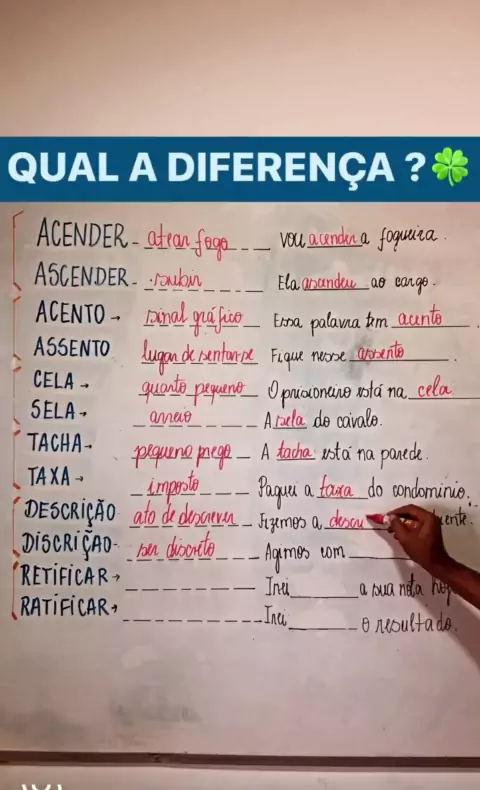 QUAL A DIFERENÇA ?🍀
ACENDER - atear fogo vou acender a fogueira.
ASCENDER - subir Ela ascendeu ao cargo.
ACENTO → sinal gráfico Essa palavra tem acento.
ASSENTO lugar de sentar-se Fique nesse assento.
CELA → quarto pequeno O prisioneiro está na cela.
SELA → arreio A sela do cavalo.
TACHA → pequeno prego A tacha está na parede.
TAXA → imposto Paguei a taxa do condominio.
DESCRIÇÃO ato de descrever Fizemos a descri ente.
DISCRIÇÃO - ser discreto Agimos com
RETIFICAR → Irei ______ a sua nota
RATIFICAR → Irei ______ o resultado.